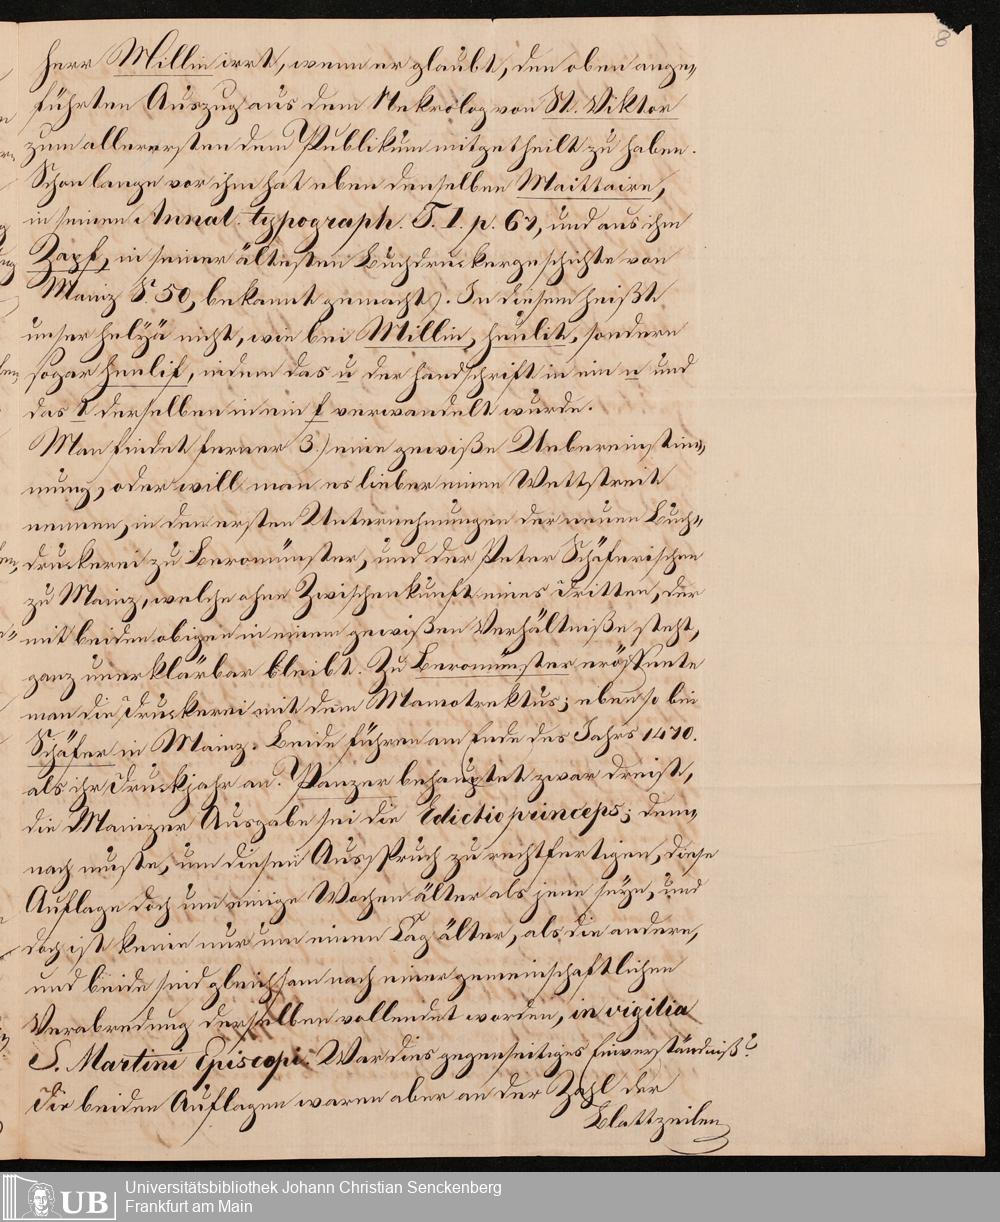 8
Herr Millin irrt, wenn er glaubt, den oben ange-
führten Auszug aus dem Nekrolog von St. Viktor
zum allerersten dem Publikum mitgetheilt zu haben.
Schon lange vor ihm hat eben denselben Maittaire,
in seinen Annal. typograph. T. I. p. 67, und aus ihm
Zapf, in seiner ältesten Buchdruckergeschichte von
Mainz S. 50, bekannt gemacht). In diesem heißt
unser helyä nicht, wie bei Millin, heulit, sondern
sogar henlif, indem das u der Handschrift in ein n und
das t derselben in ein f verwandelt wurde.
Man findet ferner 3.) eine gewiße Uebereinstim-
mung, oder will man es lieber einen Wettstreit
nennen, in den ersten Unternehmungen der neuen Buch-
druckerei zu Beromünster, und der Peter Schäferischen
zu Mainz, welche ohne Zwischenkunft eines Dritten, der
mit beiden obigen in einem gewißen Verhältniße steht,
ganz unerklärbar bleibt. Zu Beromünster eröffnete
man die Druckerei mit dem Mamotrektus; eben so bei
Schäfer in Mainz. Beide führen am Ende des Jahrs 1470.
als ihr Druckjahr an. Panzer behauptet zwar dreist,
die Mainzer Ausgabe sei die Edictio princeps; dem-
nach muste, um diesen Ausspruch zu rechtfertigen, diese
Auflage doch um einige Wochen älter als jene seyn, und
doch ist keine nur um einen Tag älter, als die andere,
und beide sind gleichsam nach einer gemeinschaftlichen
Verabredung derselben vollendet worden, in vigilia
S. Martini Episcopi. War dies gegenseitiges Einverständniß?
Die beiden Auflagen waren aber an der Zahl der
Blattzeilen
UB
Universitätsbibliothek Johann Christian Senckenberg
Frankfurt am Main